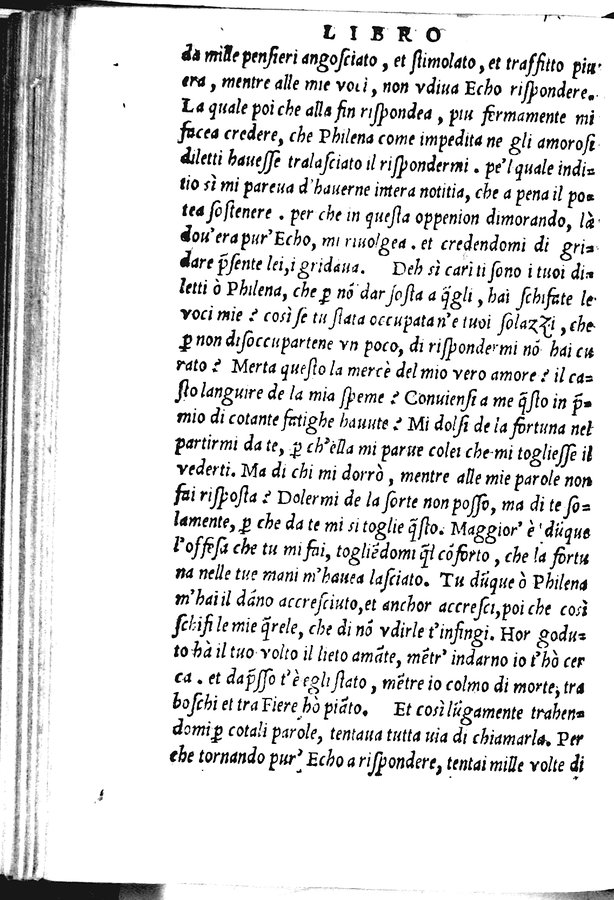 LIBRO
da mille pensieri angosciato, et stimolato, et traffitto piu
era, mentre alle mie voci, non vdiua Echo rispondere.
La quale poi che alla fin rispondea, piu fermamente mi
facea credere, che Philena come impedita ne gli amorosi
diletti hauesse tralasciato il rispondermi. pe'l quale indi=
tio sì mi pareua d'hauerne intera notitia, che a pena il po=
tea sostenere. per che in questa oppenion dimorando, là
dou'era pur' Echo, mi riuolgea. et credendomi di gri=
dare p̄sente lei, i gridaua. Deh sì cari ti sono i tuoi di=
letti ò Philena, che ꝑ nō dar sosta a q̄gli, hai schifate le
voci mie? così se tu stata occupata n'e tuoi solazzi, che
ꝑ non disoccupartene vn poco, di rispondermi nō hai cu
rato? Merta questo la mercè del mio vero amore? il ca=
sto languire de la mia speme? Conuiensi a me q̄sto in p̄=
mio di cotante fatighe hauute? Mi dolsi de la fortuna nel
partirmi da te, ꝑ ch'ella mi parue colei che mi togliesse il
vederti. Ma di chi mi dorrò, mentre alle mie parole non
fai risposta? Dolermi de la sorte non posso, ma di te so=
lamente, ꝑ che da te mi si toglie q̄sto. Maggior' è dūque
l'offesa che tu mi fai, togliēdomi q̄l cōforto, che la fortu
na nelle tue mani m'hauea lasciato. Tu dūque ò Philena
m'hai il dāno accresciuto, et anchor accresci, poi che così
schifi le mie q̄rele, che di nō vdirle t'infingi. Hor godu=
to hà il tuo volto il lieto amāte, mētr' indarno io t'hò cer
ca. et dap̄sso t'è egli stato, mētre io colmo di morte, tra
boschi et tra Fiere hò piāto. Et così lūgamente trahen=
domi ꝑ cotali parole, tentaua tutta uia di chiamarla. Per
che tornando pur' Echo a rispondere, tentai mille volte di